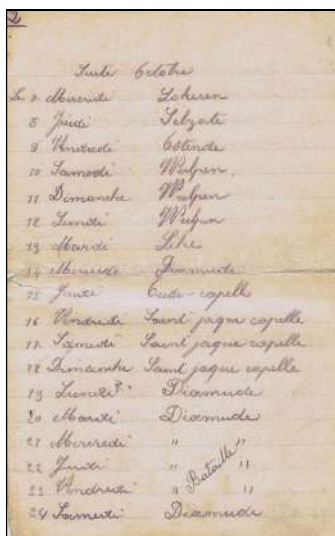 2
Suite Octobre
Le 7 Mercredi Lokeren
8 Jeudi Selzate
9 Vendredi Ostende
10 Samedi Wulpen.
11 Dimanche Wulpen
12 Lundi Wulpen
13 Mardi
14 Mercredi Dixmude
15 Jeudi Oude-capelle
16 Vendredi Saint jaque capelle
17 Samedi Saint jaque capelle
18 Dimanche Saint jaque capelle
19 Lundi Dixmude
20 Mardi Dixmude
21 Mercredi " "
22 Jeudi " Bataille "
23 Vendredi " "
24 Samedi Dixmude